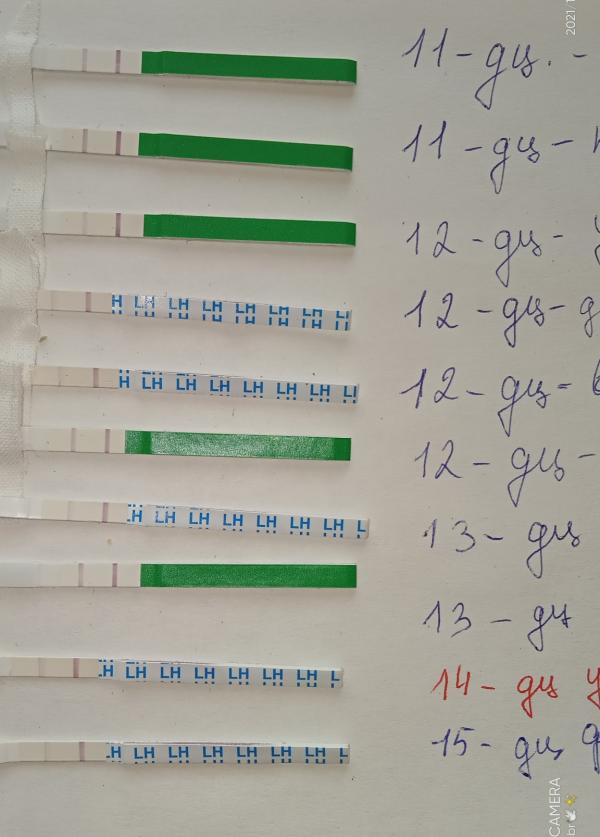 2021/1
11 - дц. -
11 - дц -
12 - дц -
H LH LH LH LH LH LH LH
12 - дц -
H LH LH LH LH LH LH LH
12 - дц -
12 - дц -
LH LH LH LH LH LH LH L
13 - дц
13 - дц
LH LH LH LH LH LH LH L
14 - дц у
H LH LH LH LH LH LH L
15 - дц
CAMERA